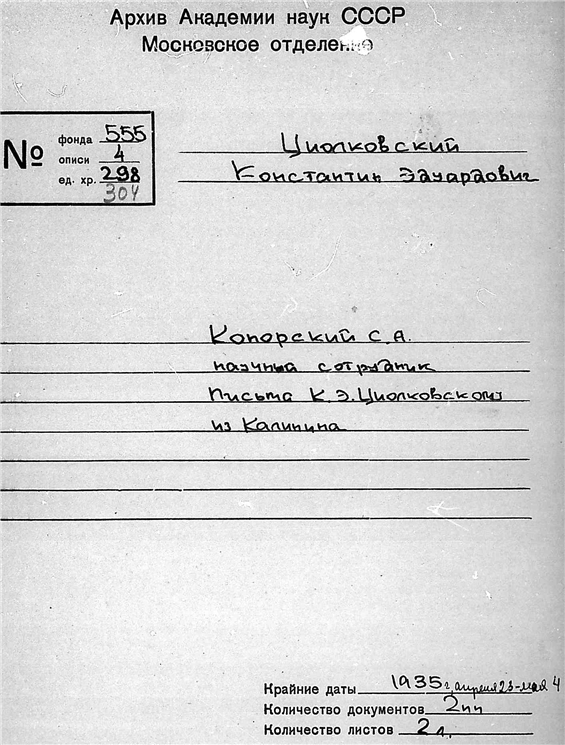 Архив Академии наук СССР
Московское отделение
№
фонда 555
описи 4
ед. хр. 298
304
Циолковский
Константин Эдуардович
Копорский С.А.
научный сотрудник
Письма К.Э.Циолковскому
из Калинина
Крайние даты 1935 г, апреля 23-мая 4
Количество документов 2
Количество листов 2 л.